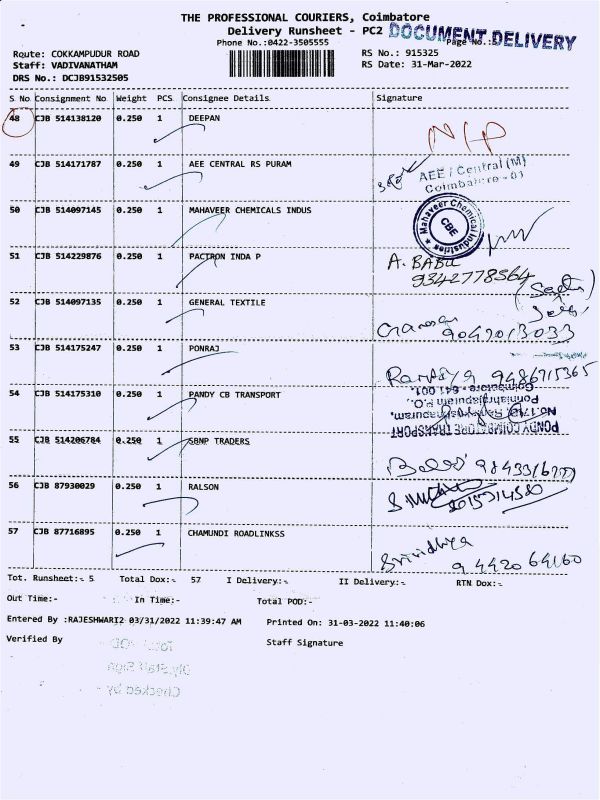 THE PROFESSIONAL COURIERS, Coimbatore
Delivery Runsheet - PC2
DOCUMENT DELIVERY
Phone No.:0422-3505555
Page No.:
Route: COKKAMPUDUR ROAD
RS No.: 915325
Staff: VADIVANATHAM
RS Date: 31-Mar-2022
DRS No.: DCJB91532505
S No Consignment No Weight PCS Consignee Details Signature
48 CJB 514138120 0.250 1 DEEPAN
N/P
49 CJB 514171787 0.250 1 AEE CENTRAL RS PURAM
AEE / Central (M)
Coimbatore - 01
50 CJB 514097145 0.250 1 MAHAVEER CHEMICALS INDUS
Mahaveer Chemical Industries
CBE
51 CJB 514229876 0.250 1 PACTRON INDA P
A. BABU
9342778564
52 CJB 514097135 0.250 1 GENERAL TEXTILE
9042013033
53 CJB 514175247 0.250 1 PONRAJ
9486715365
54 CJB 514175310 0.250 1 PANDY CB TRANSPORT
Coimbatore - 641 001.
Ponniahrajapuram P.O.,
PONDY COIMBATORE TRANSPORT
55 CJB 514206784 0.250 1 SBNP TRADERS
56 CJB 87930029 0.250 1 RALSON
57 CJB 87716895 0.250 1 CHAMUNDI ROADLINKSS
Srividhya
9 4420 64160
Tot. Runsheet:- 5 Total Dox:- 57 I Delivery:- II Delivery:- RTN Dox:-
Out Time:- In Time:- Total POD:-
Entered By :RAJESHWARI2 03/31/2022 11:39:47 AM Printed On: 31-03-2022 11:40:06
Verified By Staff Signature
Dly.Staff Sign
Checked by -